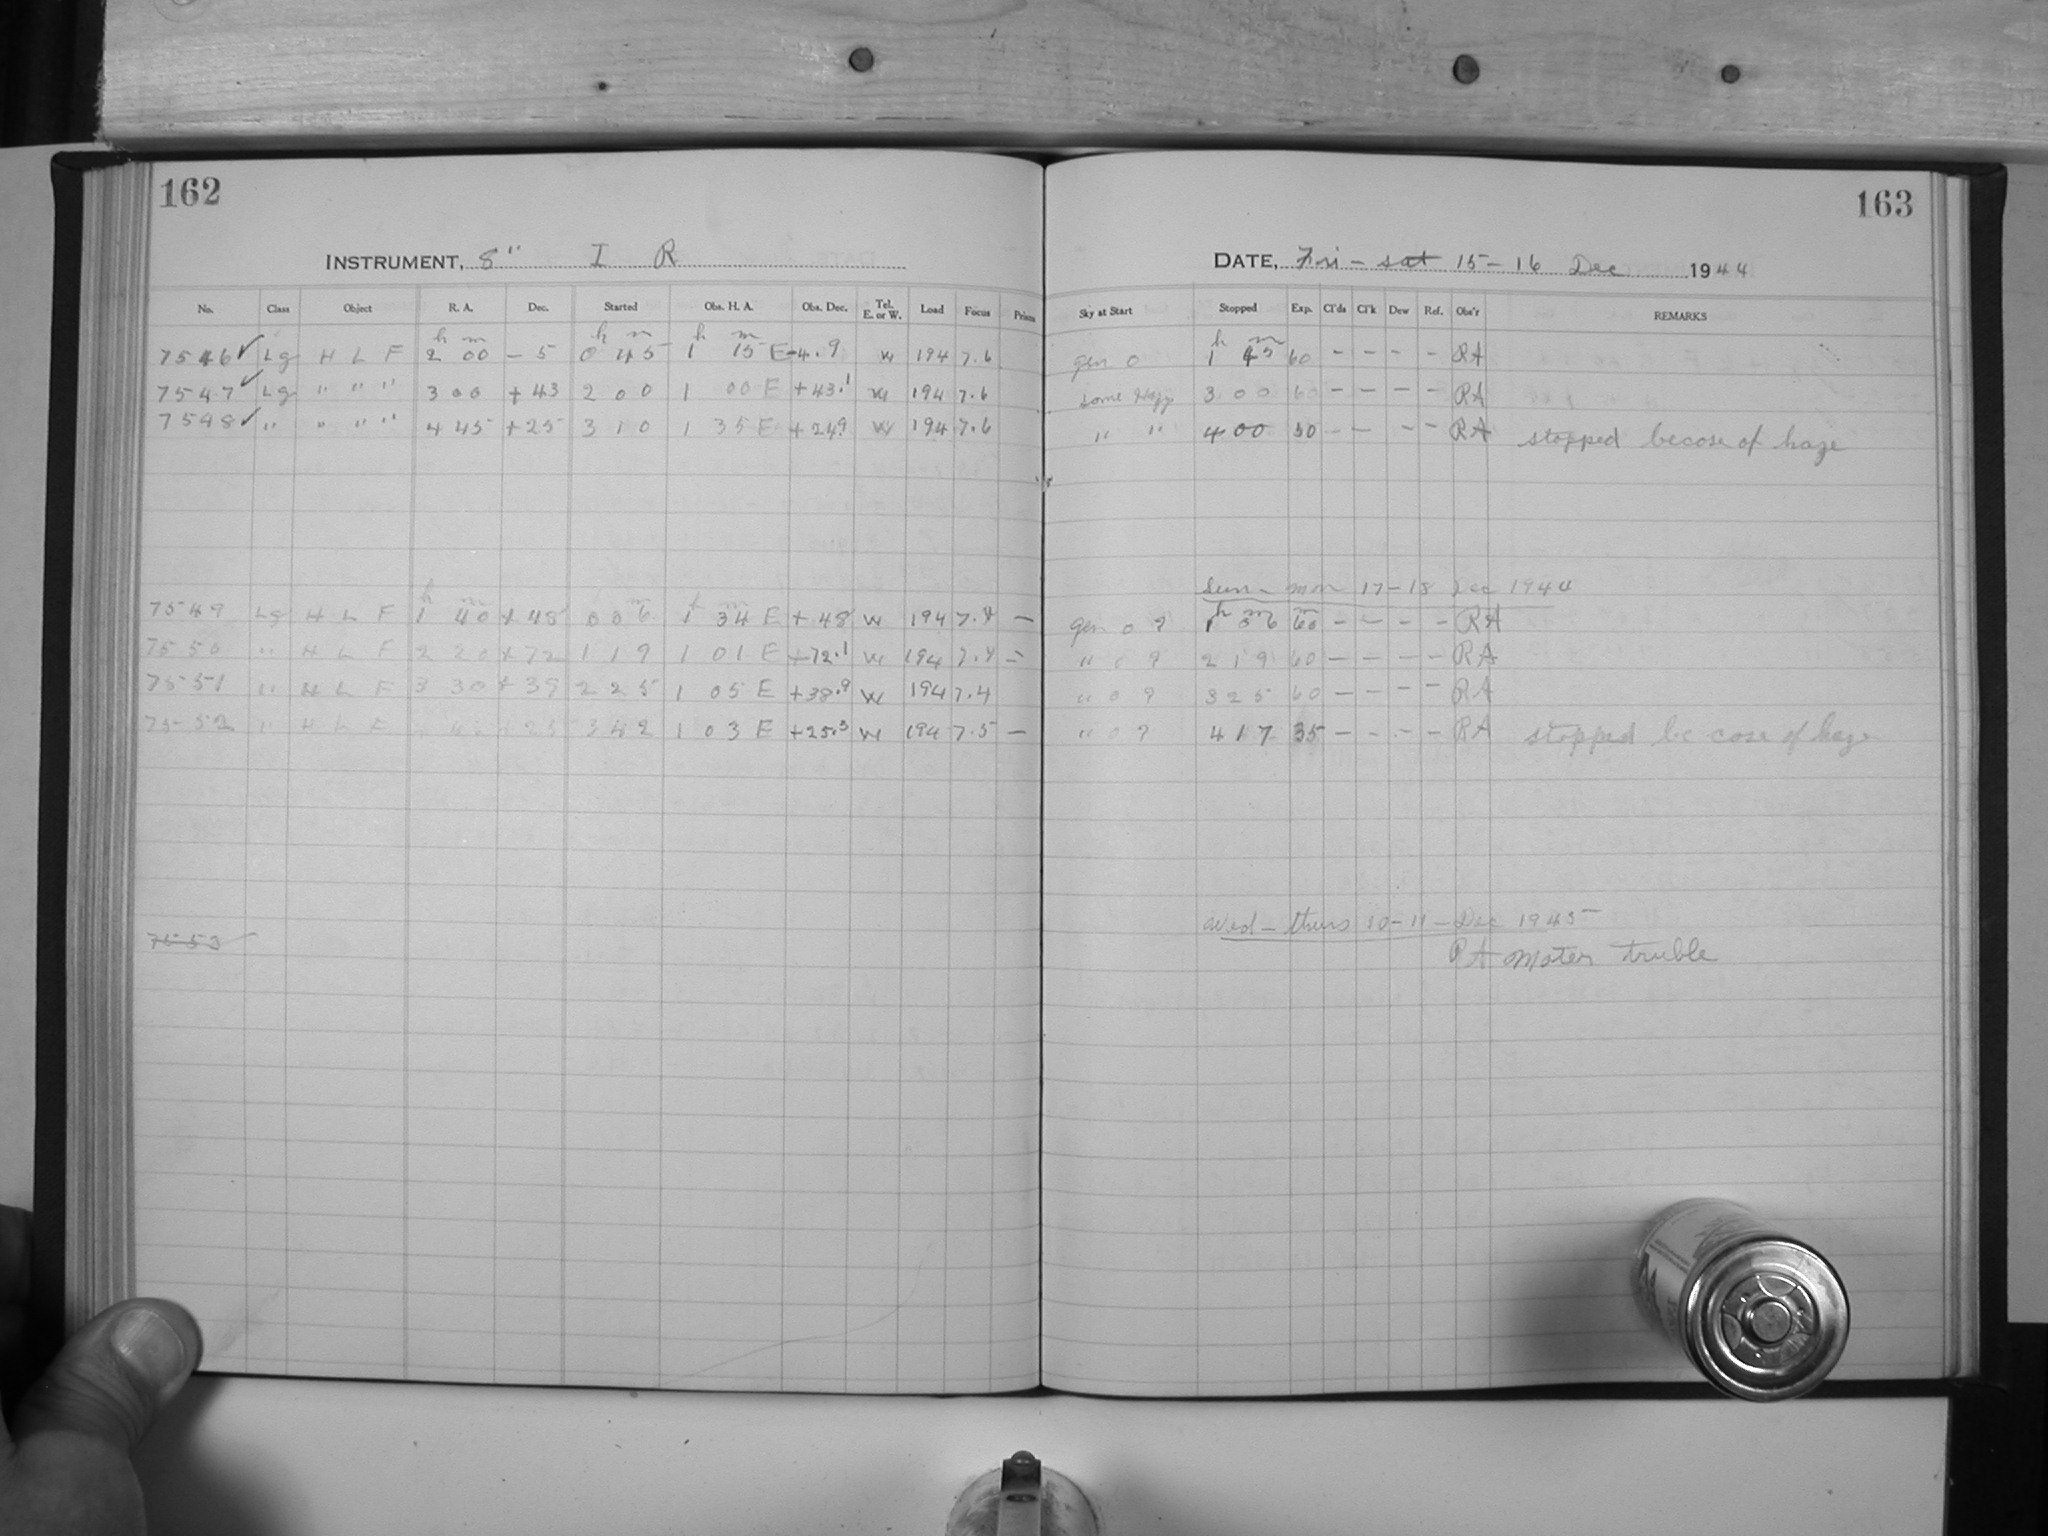 162
163
INSTRUMENT, 8" I R
DATE, Fri - sat 15-16 Dec 1944
No. Class Object R. A. Dec. Started Obs. H. A. Obs. Dec. Tel. E. or W. Load Focus Prism Sky at Start Stopped Exp. Cl'ds Cl'k Dew Ref. Obs'r REMARKS
h m h m h m h m
7546 ✓ Lg H L F 2 00 - 5 0 45 1 15 E -4.9 W 194 7.6 gen 0 1 45 60 - - - - RA
7547 ✓ Lg " " " 3 00 + 43 2 00 1 00 E +43.1 W 194 7.6 some Hazy 3 00 60 - - - - RA
7548 ✓ " " " " 4 45 +25 3 10 1 35 E +24.9 W 194 7.6 " " 4 00 50 - - - - RA stopped becose of haze
Sun - mon 17-18 Dec 1944
h m h m h m m
7549 Lg H L F 1 40 + 48 0 06 1 34 E + 48 W 194 7.4 - gen 0 ? 1 06 60 - - - - RA
7550 " H L F 2 20 + 72 1 19 1 01 E +72.1 W 194 7.4 - " 0 ? 2 19 60 - - - - RA
7551 " H L F 3 30 + 39 2 25 1 05 E +38.9 W 194 7.4 " 0 ? 3 25 60 - - - - RA
7552 " H L F + 25 3 42 1 03 E +25.3 W 194 7.5 - " 0 ? 4 17 35 - - - - RA stopped be cose of haze
Wed - thurs 10-11 - Dec 1945
7553 RA Moter truble